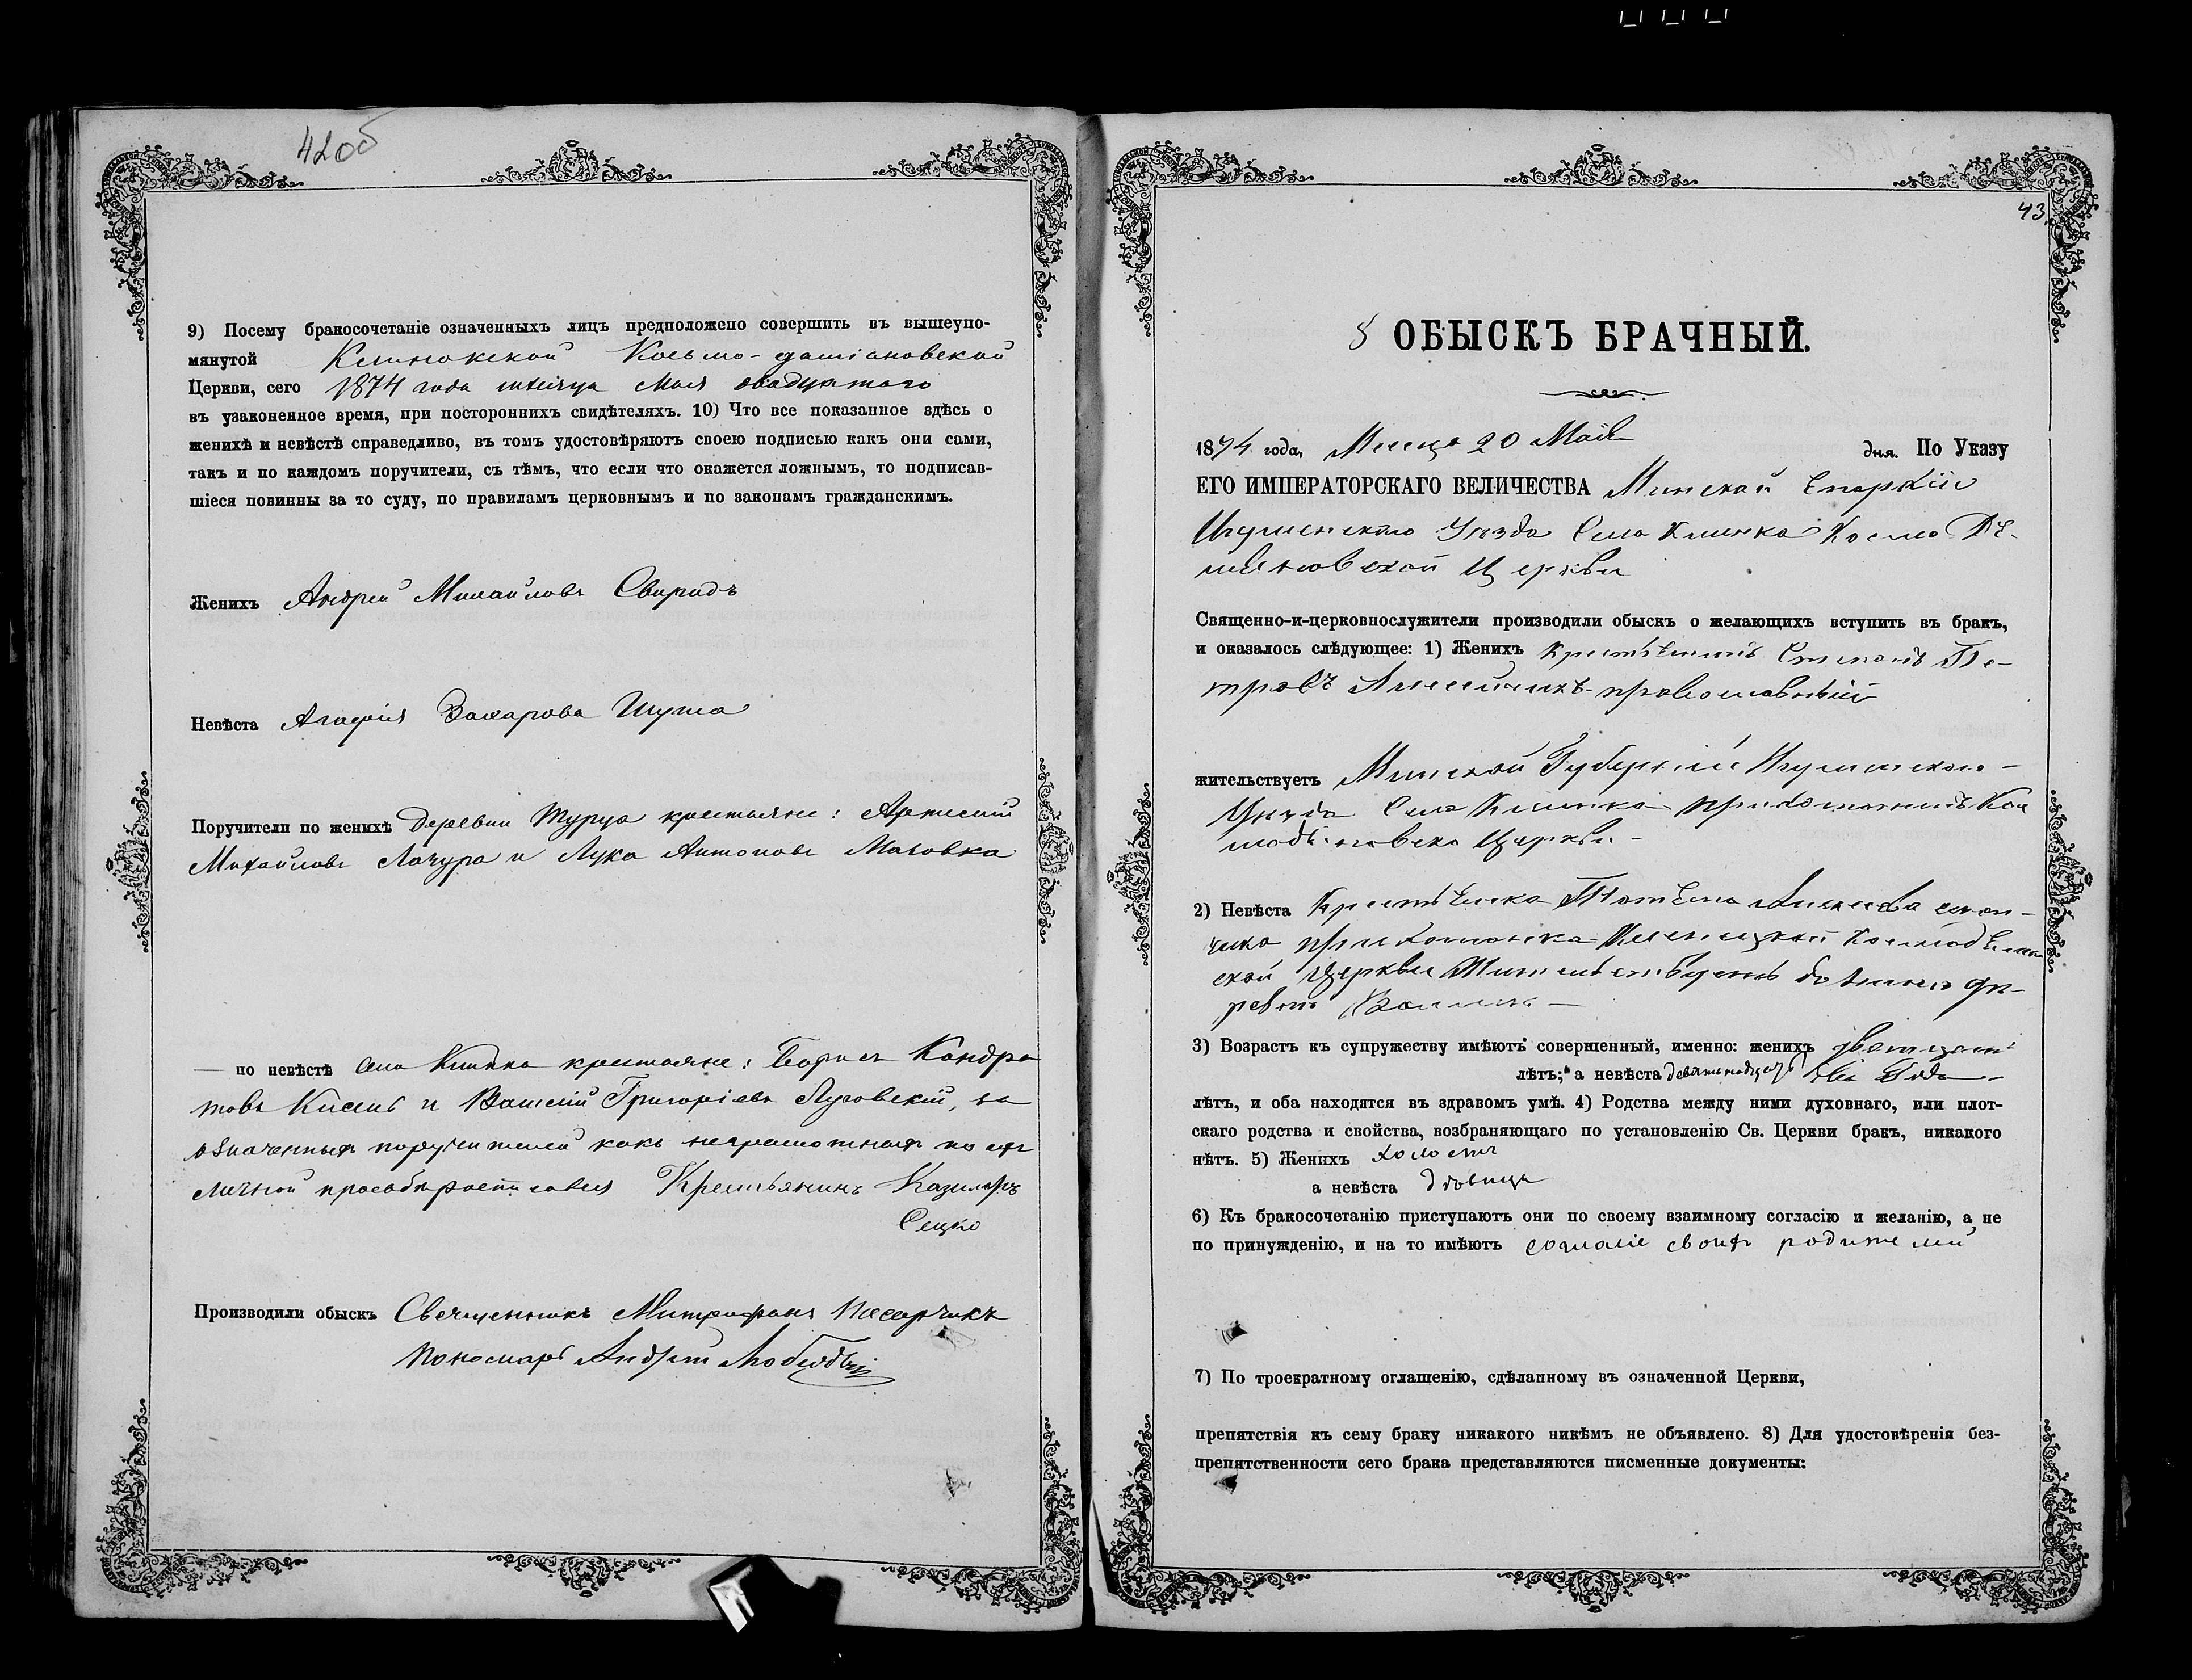 42об
9) Посему бракосочетаніе означенныхъ лицъ предположено совершить въ вышеупо-
мянутой Клинокской Косьмо-даміановской
Церкви, сего 1874 года мѣсяца Мая двадцатаго
въ узаконенное время, при постороннихъ свидѣтеляхъ. 10) Что все показанное здѣсь о
женихѣ и невѣстѣ справедливо, въ томъ удостовѣряютъ своею подписью какъ они сами,
такъ и по каждомъ поручители, съ тѣмъ, что если что окажется ложнымъ, то подписав-
шіеся повинны за то суду, по правиламъ церковнымъ и по законамъ гражданскимъ.
Женихъ Андрей Михайловъ Свиридъ
Невѣста Агафія Захарова Шума
Поручители по женихѣ деревни Турца крестьяне: Артемій
Михайловъ Лачура и Лука Антоновъ Маховка
— по невѣстѣ села Клинка крестьяне: Борисъ Кондра
товъ Кисель и Василій Григоріевъ Луговскій, за
означенныхъ поручителей какъ неграмотныхъ по ихъ
личной прозбѣ росписался Крестьянинъ Казимиръ
Сецко
Производили обыскъ Священникъ Митрофанъ
Пономарь Андрей
43
8 ОБЫСКЪ БРАЧНЫЙ.
1874 года, Месяца 20 Мая дня. По Указу
ЕГО ИМПЕРАТОРСКАГО ВЕЛИЧЕСТВА Минской Епархіи
Игуменскаго Уѣзда Села Клинка Космо Де-
міяновской Церкви
Священно-и-церковнослужители производили обыскъ о желающихъ вступить въ бракъ,
и оказалось слѣдующее: 1) Женихъ Степанъ Пе-
тровъ православный
жительствуетъ Минской Губерніи Игуменскаго
Уѣзда Села Клинка
Церкви
2) Невѣста
Церкви
3) Возрастъ къ супружеству имѣютъ совершенный, именно: женихъ
лѣтъ; а невѣста девятнадцать Года
лѣтъ, и оба находятся въ здравомъ умѣ. 4) Родства между ними духовнаго, или плот-
скаго родства и свойства, возбраняющаго по установленію Св. Церкви бракъ, никакого
нѣтъ. 5) Женихъ холостъ
а невѣста дѣвица
6) Къ бракосочетанію приступаютъ они по своему взаимному согласію и желанію, а не
по принужденію, и на то имѣютъ согласіе своихъ родителей
7) По троекратному оглашенію, сдѣланному въ означенной Церкви,
препятствія къ сему браку никакого никѣмъ не объявлено. 8) Для удостовѣренія без-
препятственности сего брака представляются писменные документы: